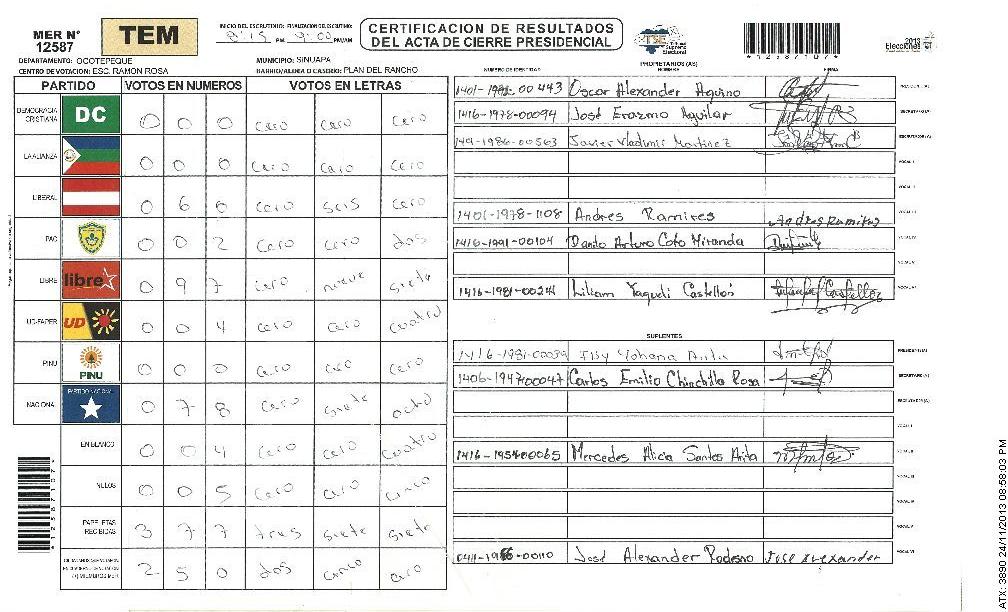 MER N° 12587
TEM
INICIO DEL ESCRUTINIO: FINALIZACION DEL ESCRUTINIO:
8:15 PM 9:00 PM/AM
CERTIFICACION DE RESULTADOS
DEL ACTA DE CIERRE PRESIDENCIAL
TSE Tribunal Supremo Electoral
2013 Elecciones
*12587107*
DEPARTAMENTO: OCOTEPEQUE
MUNICIPIO: SINUAPA
CENTRO DE VOTACION: ESC. RAMON ROSA
BARRIO/ALDEA O CASERIO: PLAN DEL RANCHO
PARTIDO VOTOS EN NUMEROS VOTOS EN LETRAS
DEMOCRACIA CRISTIANA DC 0 0 0 cero cero cero
LA ALIANZA 0 0 0 cero cero cero
LIBERAL 0 6 0 cero seis cero
PAC 0 0 2 cero cero dos
LIBRE libre 0 9 7 cero nueve siete
UD-FAPER UD 0 0 4 cero cero cuatro
PINU PINU 0 0 0 cero cero cero
NACIONAL PARTIDO NACIONAL 0 7 8 cero siete ocho
EN BLANCO 0 0 4 cero cero cuatro
NULOS 0 0 5 cero cero cinco
PAPELETAS RECIBIDAS 3 7 7 tres siete siete
2 5 0 dos cinco cero
*12587107*
PROPIETARIOS (AS)
NUMERO DE IDENTIDAD NOMBRE FIRMA
1401-1982-00443 Oscar Alexander Aquino PRESIDENTE(A)
1416-1978-00094 José Erazmo Aguilar SECRETARIO(A)
1401-1986-00563 Javier Vladimir Martinez ESCRUTADOR (A)
VOCAL I
VOCAL II
1401-1978-1108 Andres Ramires Andres Ramires VOCAL III
1416-1991-00104 Danilo Arturo Coto Miranda VOCAL IV
VOCAL V
1416-1981-00241 Liliam Yaqueli Castellón VOCAL VI
SUPLENTES
1416-1981-00039 Yohana Arita PRESIDENTE(A)
1406-1947-00047 Carlos Emilio Chinchilla Rosa SECRETARIO (A)
ESCRUTADOR (A)
VOCAL I
1416-1954-00065 Mercedes Alicia Santos Arita VOCAL II
VOCAL III
VOCAL IV
VOCAL V
0411-1966-00110 José Alexander Rodesno Jose Alexander VOCAL VI
ATX: 3890 24/11/2013 08:58:03 PM